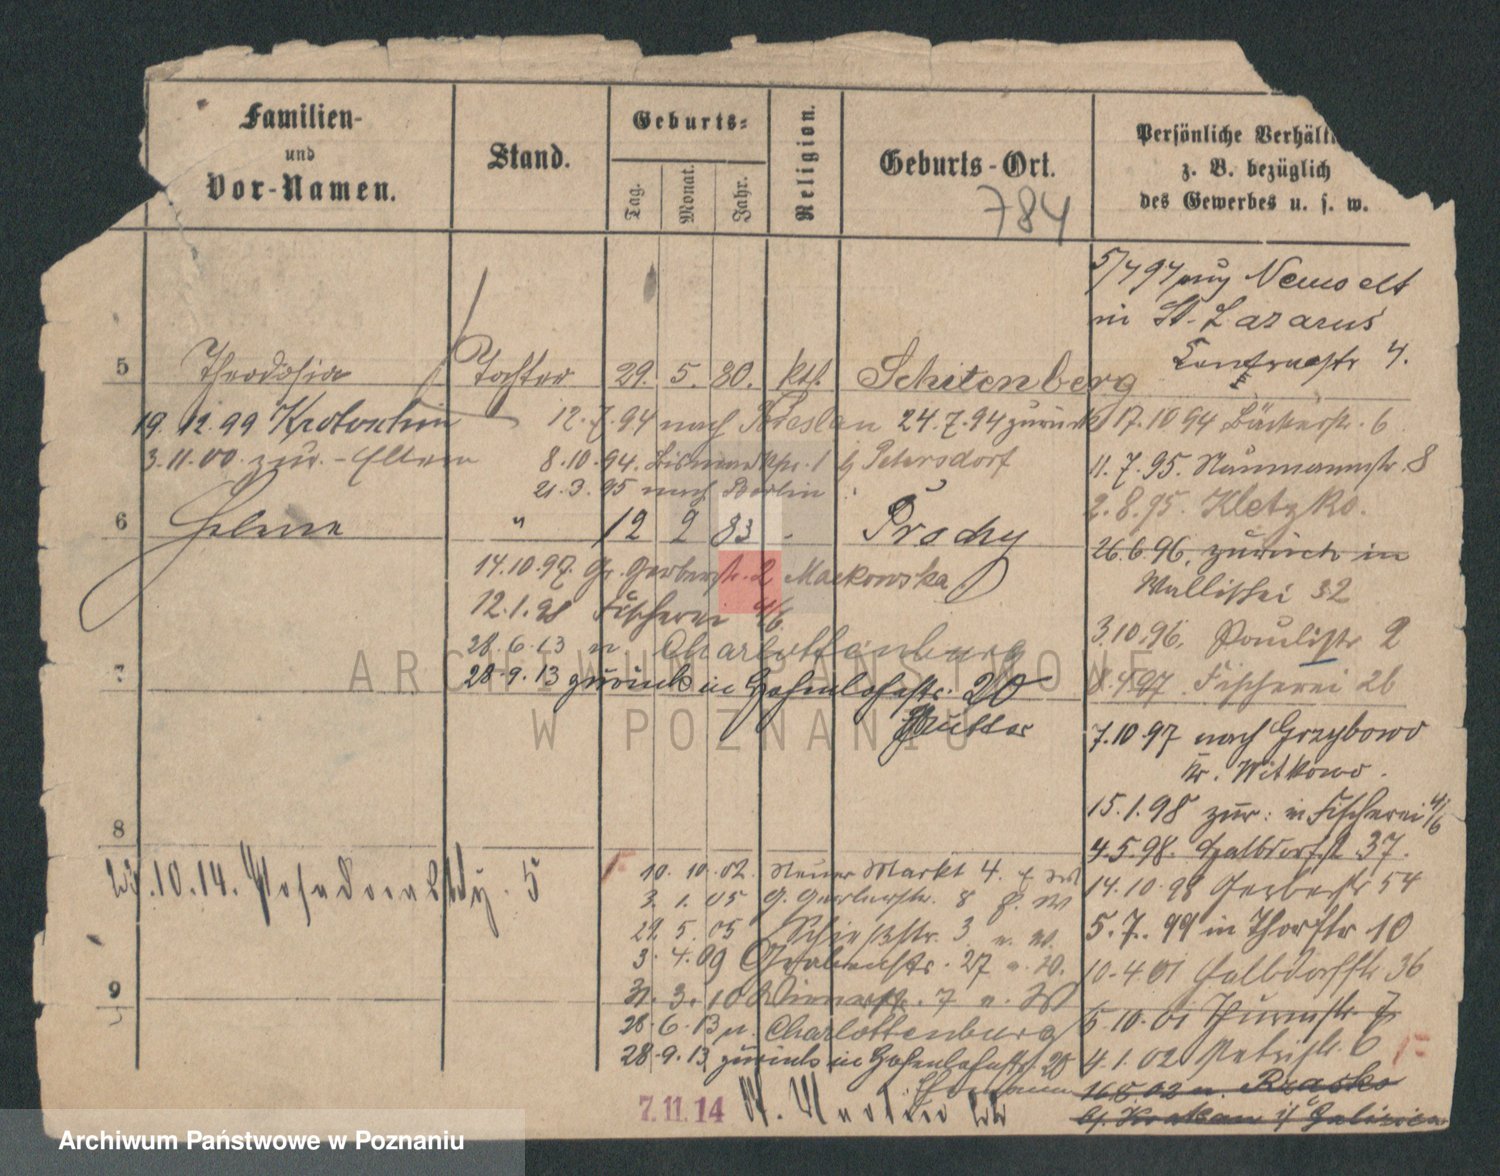 Familien-
und
Vor-Namen.
Stand.
Geburts-
Tag.
Monat.
Jahr.
Religion.
Geburts-Ort.
784
Persönliche Verhält
z. B. bezüglich
des Gewerbes u. s. w.
5/4 94
in St. Lazarus
4.
5 Theodosia Tochter 29. 5. 80. kth. Schitenberg
19. 12. 99 Krotoschin 12. 7. 94 nach Breslau 24. 7. 94 zurück
17. 10 94 Bäckerstr. 6
3. 11. 00. zur. - Eltern 8. 10. 94. Bismarckstr. 1 b/ Petersdorf
11. 7. 95. Naumannstr. 8
21. 3. 95 nach Berlin
2. 8. 95. Kletzko.
6 Helene " 12 2 83 - Prochy
26. 6. 96. zurück in
Wallischei 32
14. 10. 97. Gr. Gerberstr. 2 Mackowska
12. 1. 98 Fischerei 4/6
3. 10. 96. Paulistr 2
28. 6. 13 n Charlottenburg
28. 9. 13 zurück in Hohenlohestr. 20
Mutter
7
8. 4. 97 Fischerei 26
7. 10. 97 nach Grzybowo
Kr. Witkowo.
15. 1. 98 zur: in Fischerei 4/6
8
4. 5. 98. Halbdorfstr 37.
10. 14. 5
10. 10. 02. Neuer Markt 4.
14. 10. 98 Gerberstr 54
3. 1. 05 G. Gerberstr. 8
5. 7. 99 in Thorstr 10
29. 5. 05 Schießstr. 3
3. 4. 09 Grabenstr. 27
10. 4. 01 Halbdorfstr 36
9
31. 3. 10 7
5. 10. 01 Thurmstr. 7
28. 6. 13 n. Charlottenburg
28. 9. 13 zurück in Hohenlohestr. 20
4. 1. 02 Petristr. 6
n. Rzasko
b/. Krakau i/ Galizien
7.11.14
ARCHIWUM PAŃSTWOWE
W POZNANIU
Archiwum Państwowe w Poznaniu